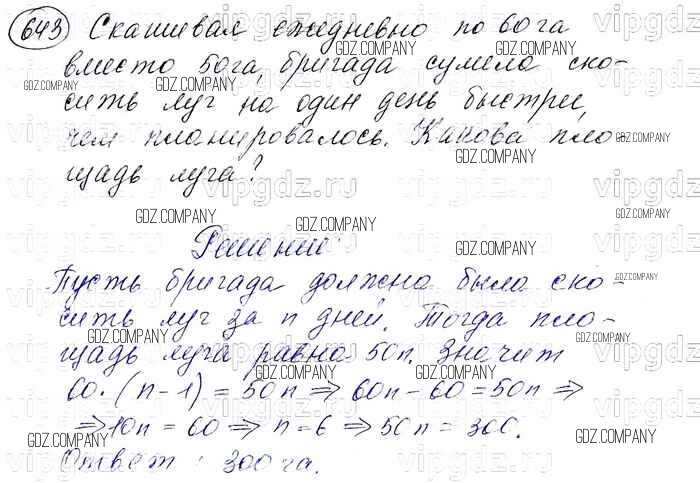 643 Скашивая ежедневно по 60 га
вместо 50 га, бригада сумела ско-
сить луг на один день быстрее,
чем планировалось. Какова пло-
щадь луга?
Решение:
Пусть бригада должна была ско-
сить луг за n дней. Тогда пло-
щадь луга равна 50n. Значит
60·(n-1) = 50n ⇒ 60n - 60 = 50n ⇒
⇒ 10n = 60 ⇒ n = 6 ⇒ 50n = 300.
Ответ: 300 га.